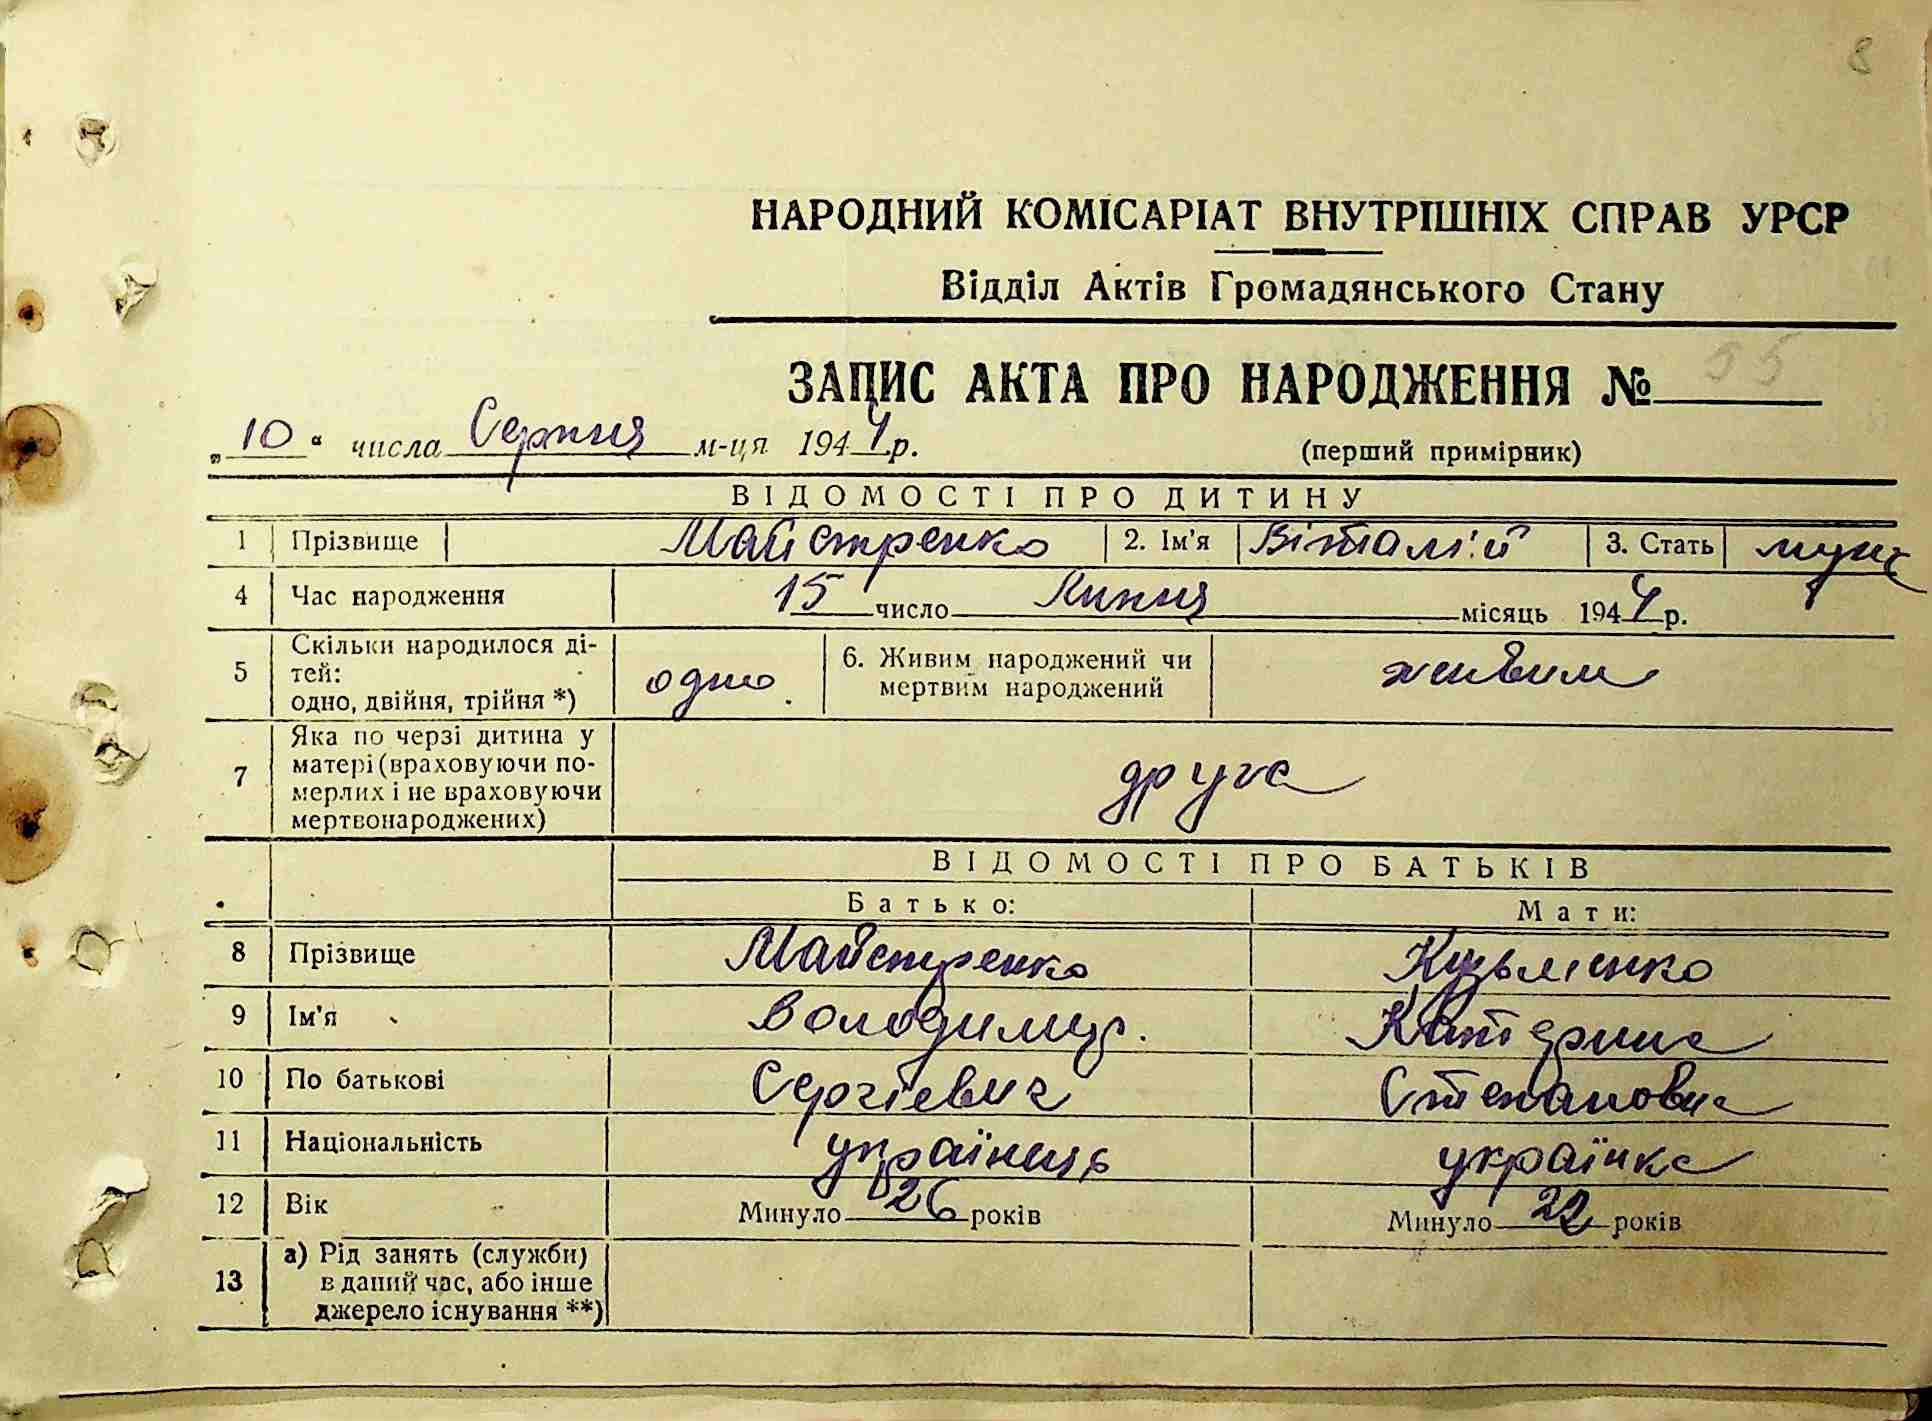 8
НАРОДНИЙ КОМІСАРІАТ ВНУТРІШНІХ СПРАВ УРСР
Відділ Актів Громадянського Стану
ЗАПИС АКТА ПРО НАРОДЖЕННЯ № 55
„10“ числа Серпня м-ця 1944 р.
(перший примірник)
ВІДОМОСТІ ПРО ДИТИНУ
1 Прізвище Майстренко 2. Ім'я Віталій 3. Стать муж
4 Час народження 15 число Липня місяць 1944 р.
5 Скільки народилося ді-
тей:
одно, двійня, трійня *) одно 6. Живим народжений чи
мертвим народжений живим
7 Яка по черзі дитина у
матері (враховуючи по-
мерлих і не враховуючи
мертвонароджених) друга
ВІДОМОСТІ ПРО БАТЬКІВ
Батько: Мати:
8 Прізвище Майстренко Кузьменко
9 Ім'я Володимир. Катерина
10 По батькові Сергієвич Степановна
11 Національність українець українка
12 Вік Минуло 26 років Минуло 22 років
13 а) Рід занять (служби)
в даний час, або інше
джерело існування **)